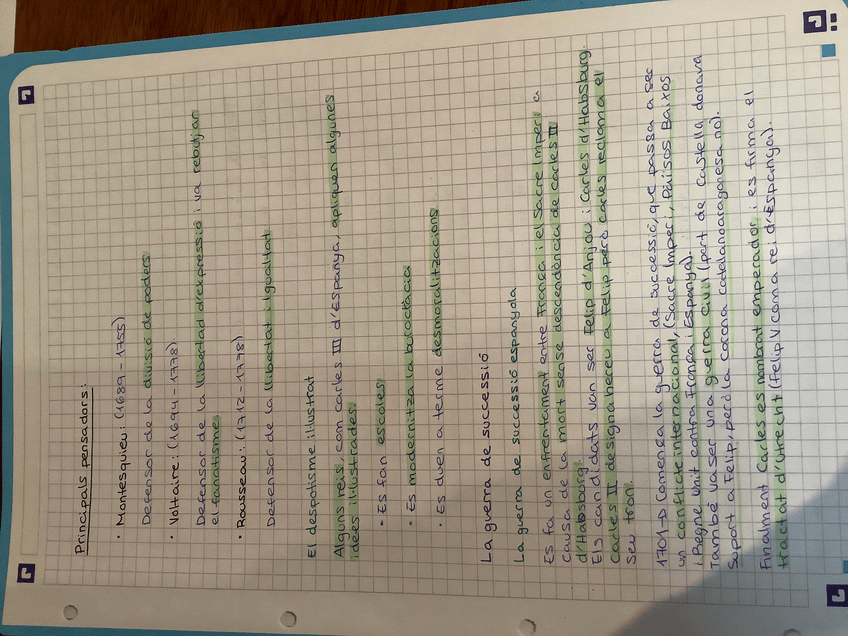 Principals pensadors:
• Montesquieu: (1689-1755)
Defensor de la divisió de poders
• Voltaire: (1694-1778).
Defensor de la llibertad d'expressió i va rebutjar
el fanatisme.
• Rousseau: (1712-1778)
Defensor de la llibertat i igualtat
El despotisme il·lustrat
Alguns reis, com carles III d'Espanya, apliquen algunes
idees il·lustrades.
• Es fan escoles
• Es modernitza la burocràcia
• Es duen a terme desmoralitzacions
La guerra de successió
La guerra de successió espanyola
Es fa un enfrentament entre França i el Sacre Imperi a
causa de la mort sense descendència de carles II
d'Habsburg.
Els candidats van ser Felip d'Anjou i Carles d'Habsburg.
Carles II designa hereu a Felip però carles reclama el
seu tron.
1701→ Comença la guerra de successió, que passa a ser
un conflicte internacional, (Sacre Imperi, Països Baixos
i Regne Unit contra França i Espanya).
També va ser una guerra civil (part de Castella donava
suport a Felip, però la corona catalanoaragonesa no).
Finalment Carles es nombrat emperador i es firma el
tractat d'Utrecht (Felip V com a rei d'Espanya).